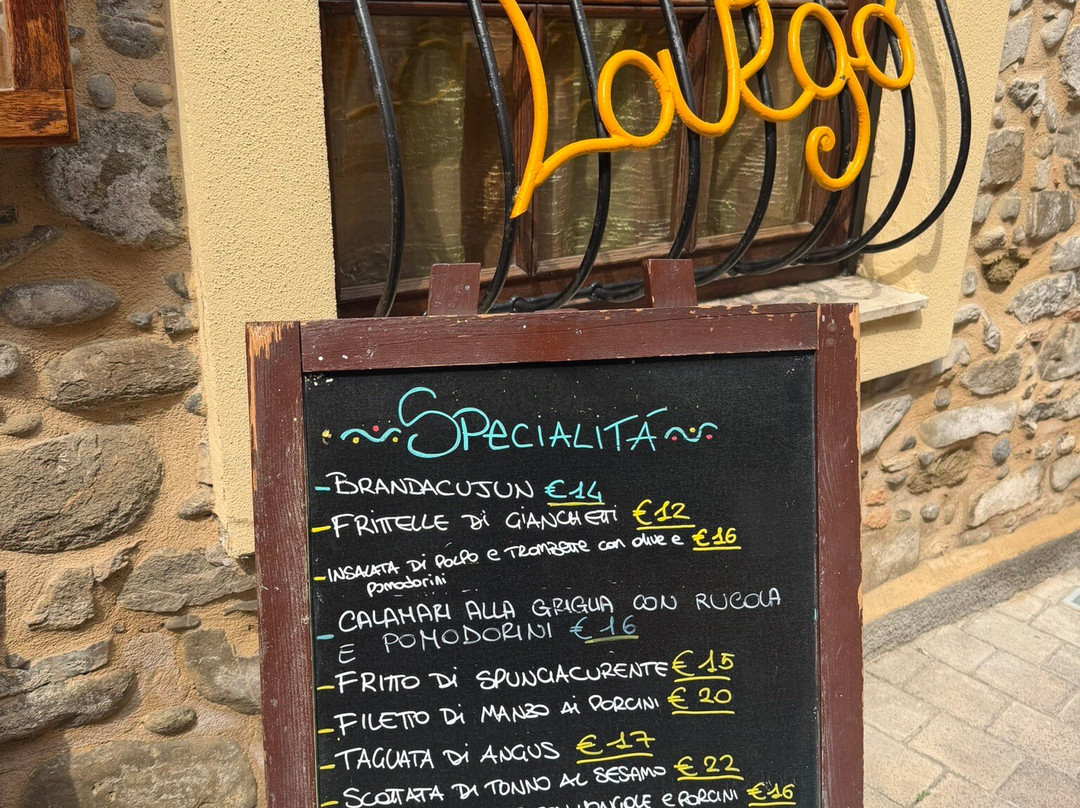 Largo
SPECIALITÁ
- BRANDACUJUN €14
- FRITTELLE DI GIANCHETTI €12
- INSALATA DI POLPO E TROMBETTE CON OLIVE E €16
POMODORINI
- CALAMARI ALLA GRIGLIA CON RUCOLA
E POMODORINI €16
- FRITTO DI SPUNCIACURENTE €15
- FILETTO DI MANZO AI PORCINI €20
- TAGLIATA DI ANGUS €17
- SCOTTATA DI TONNO AL SESAMO €22
VONGOLE E PORCINI €16